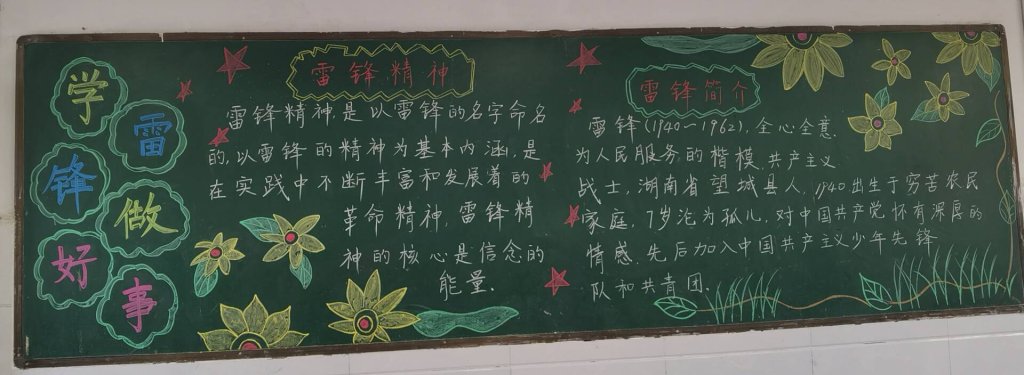 学
雷
锋
做
好
事
雷锋精神
雷锋精神是以雷锋的名字命名
的,以雷锋的精神为基本内涵,是
在实践中不断丰富和发展着的
革命精神,雷锋精
神的核心是信念的
能量.
雷锋简介
雷锋(1940-1962),全心全意
为人民服务的楷模,共产主义
战士,湖南省望城县人,1940出生于穷苦农民
家庭,7岁沦为孤儿,对中国共产党怀有深厚的
情感.先后加入中国共产主义少年先锋
队和共青团.